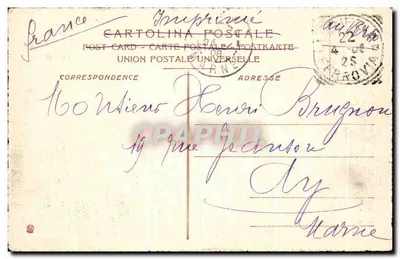 France
Imprimé
CARTOLINA POSTALE
POST CARD - CARTE POSTALE - POSTKARTE
UNION POSTALE UNIVERSELLE
CORRESPONDENCE
ADRESSE
MARNE
22
FERROVIA
Monsieur Henri Brugnon
19 rue Jeanson
Ay
Marne